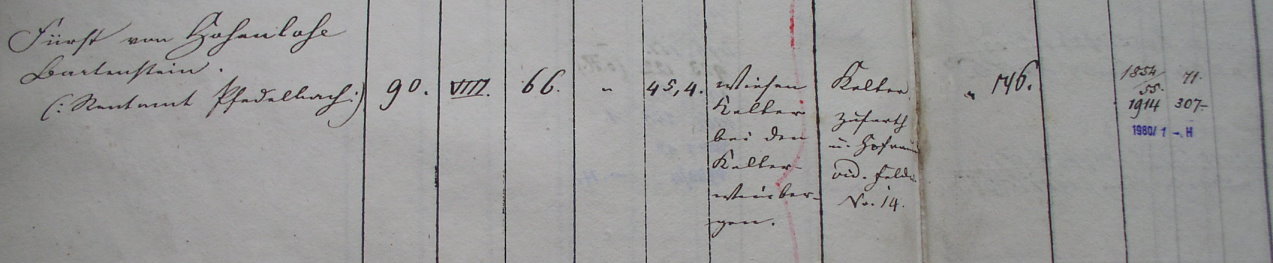 Fürst von Hohenlohe
Bartenstein.
(: Rentamt Pfedelbach :)
90.
VIII.
66.
"
45,4.
Wiesen
Kelter
bei den
Kelter-
weinber-
gen.
Kelter
Zufarth
u. Hofraum
ad. Feldr.
No. 14.
"
146.
1854/
55. 71.
1914 307-
1980/1 - H